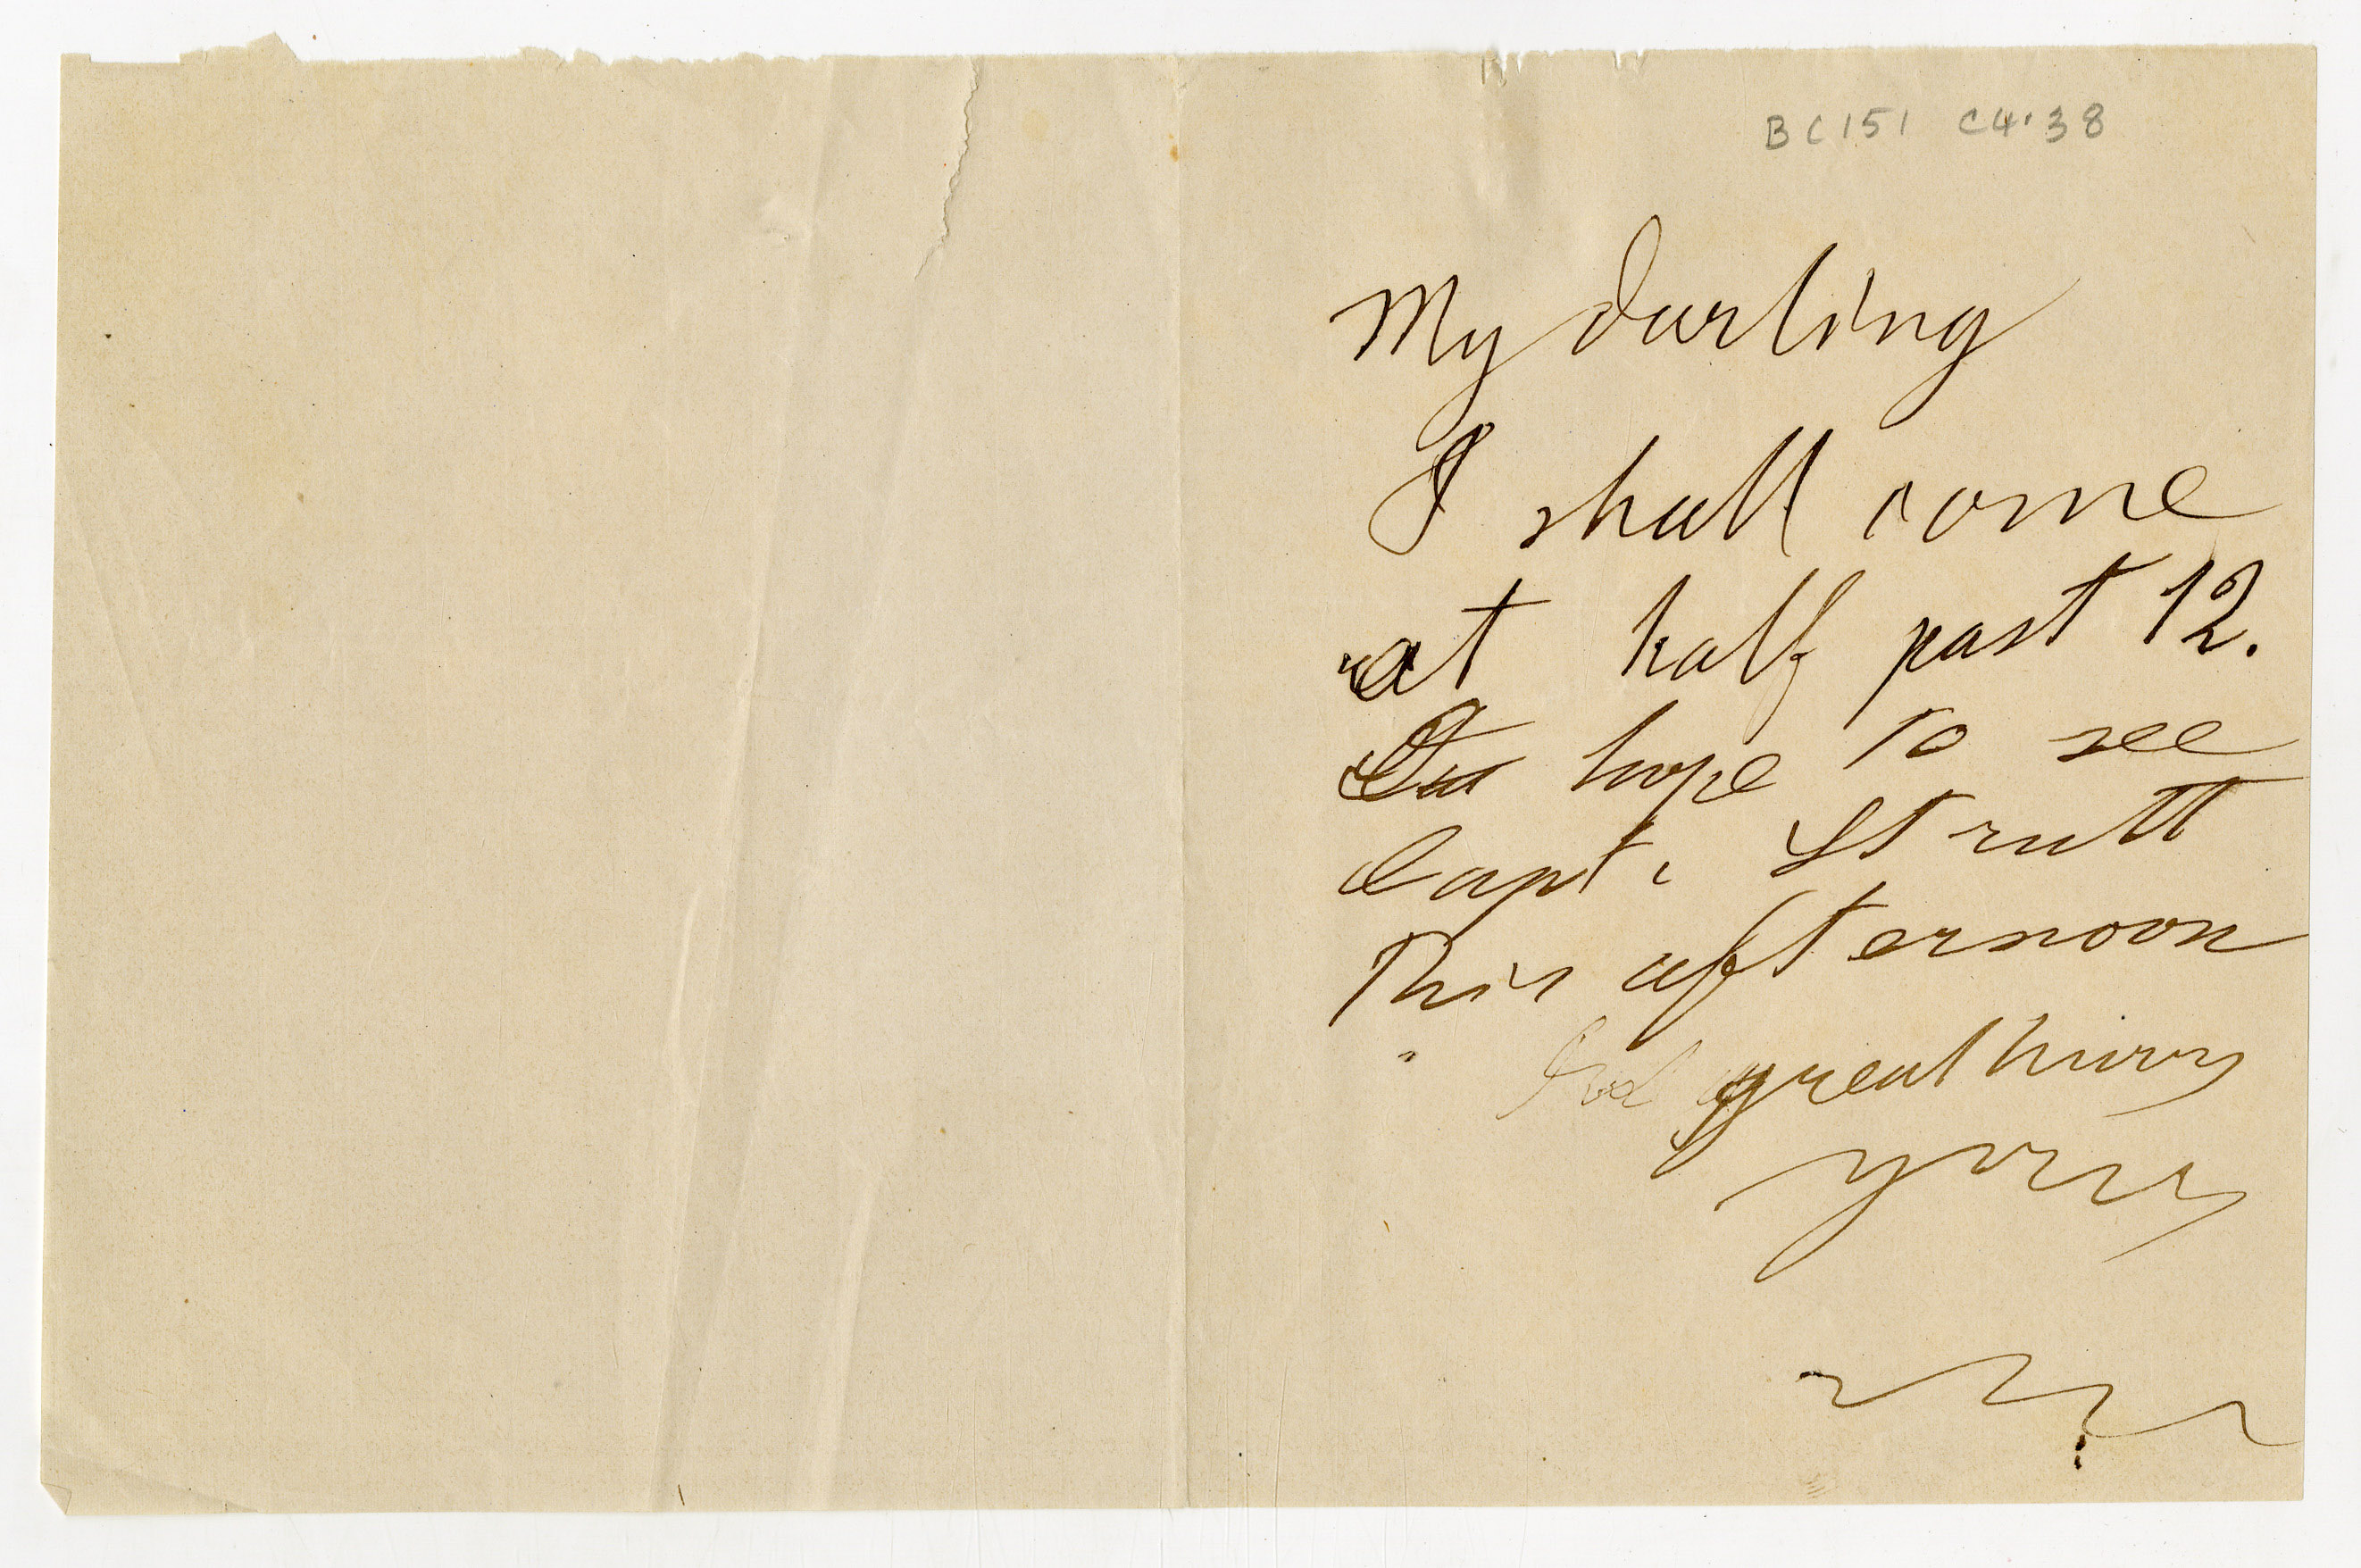 BC151 C4.38
My darling
I shall come
at half past 12.
hope to see
Capt. Strutt
This afternoon
great hurry
yours